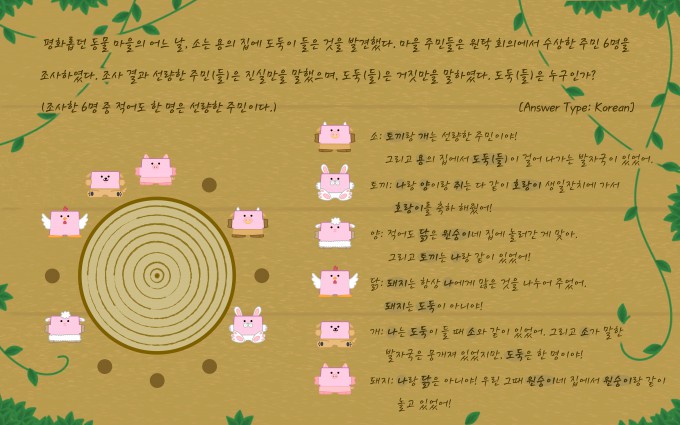 평화롭던 동물 마을의 어느 날, 소는 용의 집에 도둑이 들은 것을 발견했다. 마을 주민들은 원탁 회의에서 수상한 주민 6명을
조사하였다. 조사 결과 선량한 주민(들)은 진실만을 말했으며, 도둑(들)은 거짓만을 말하였다. 도둑(들)은 누구인가?
(조사한 6명 중 적어도 한 명은 선량한 주민이다.)
[Answer Type: Korean]
소: 토끼랑 개는 선량한 주민이야!
그리고 용의 집에서 도둑(들)이 걸어 나가는 발자국이 있었어.
토끼: 나랑 양이랑 쥐는 다 같이 호랑이 생일잔치에 가서
호랑이를 축하 해줬어!
양: 적어도 닭은 원숭이네 집에 놀러간 게 맞아.
그리고 토끼는 나랑 같이 있었어!
닭: 돼지는 항상 나에게 많은 것을 나누어 주었어.
돼지는 도둑이 아니야!
개: 나는 도둑이 들 때 소와 같이 있었어. 그리고 소가 말한
발자국은 뭉개져 있었지만, 도둑은 한 명이야!
돼지: 나랑 닭은 아니야! 우린 그때 원숭이네 집에서 원숭이랑 같이
놀고 있었어!